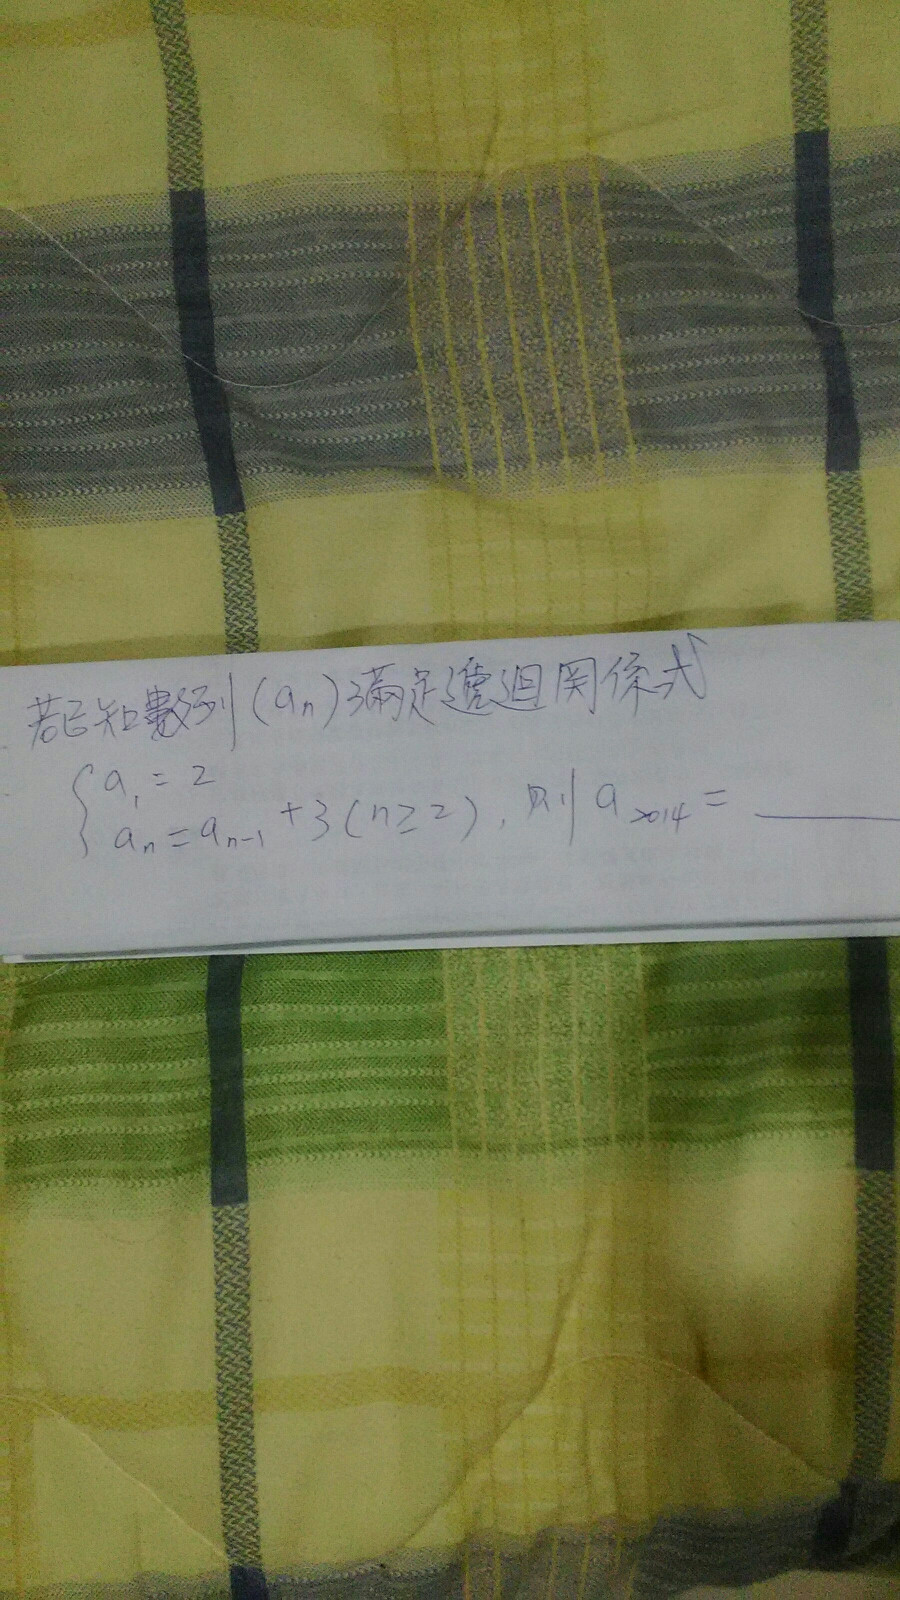 若已知數列(aₙ)滿足遞迴関係式
{a₁=2
aₙ=aₙ₋₁+3(n≥2), 則a₂₀₁₄=____